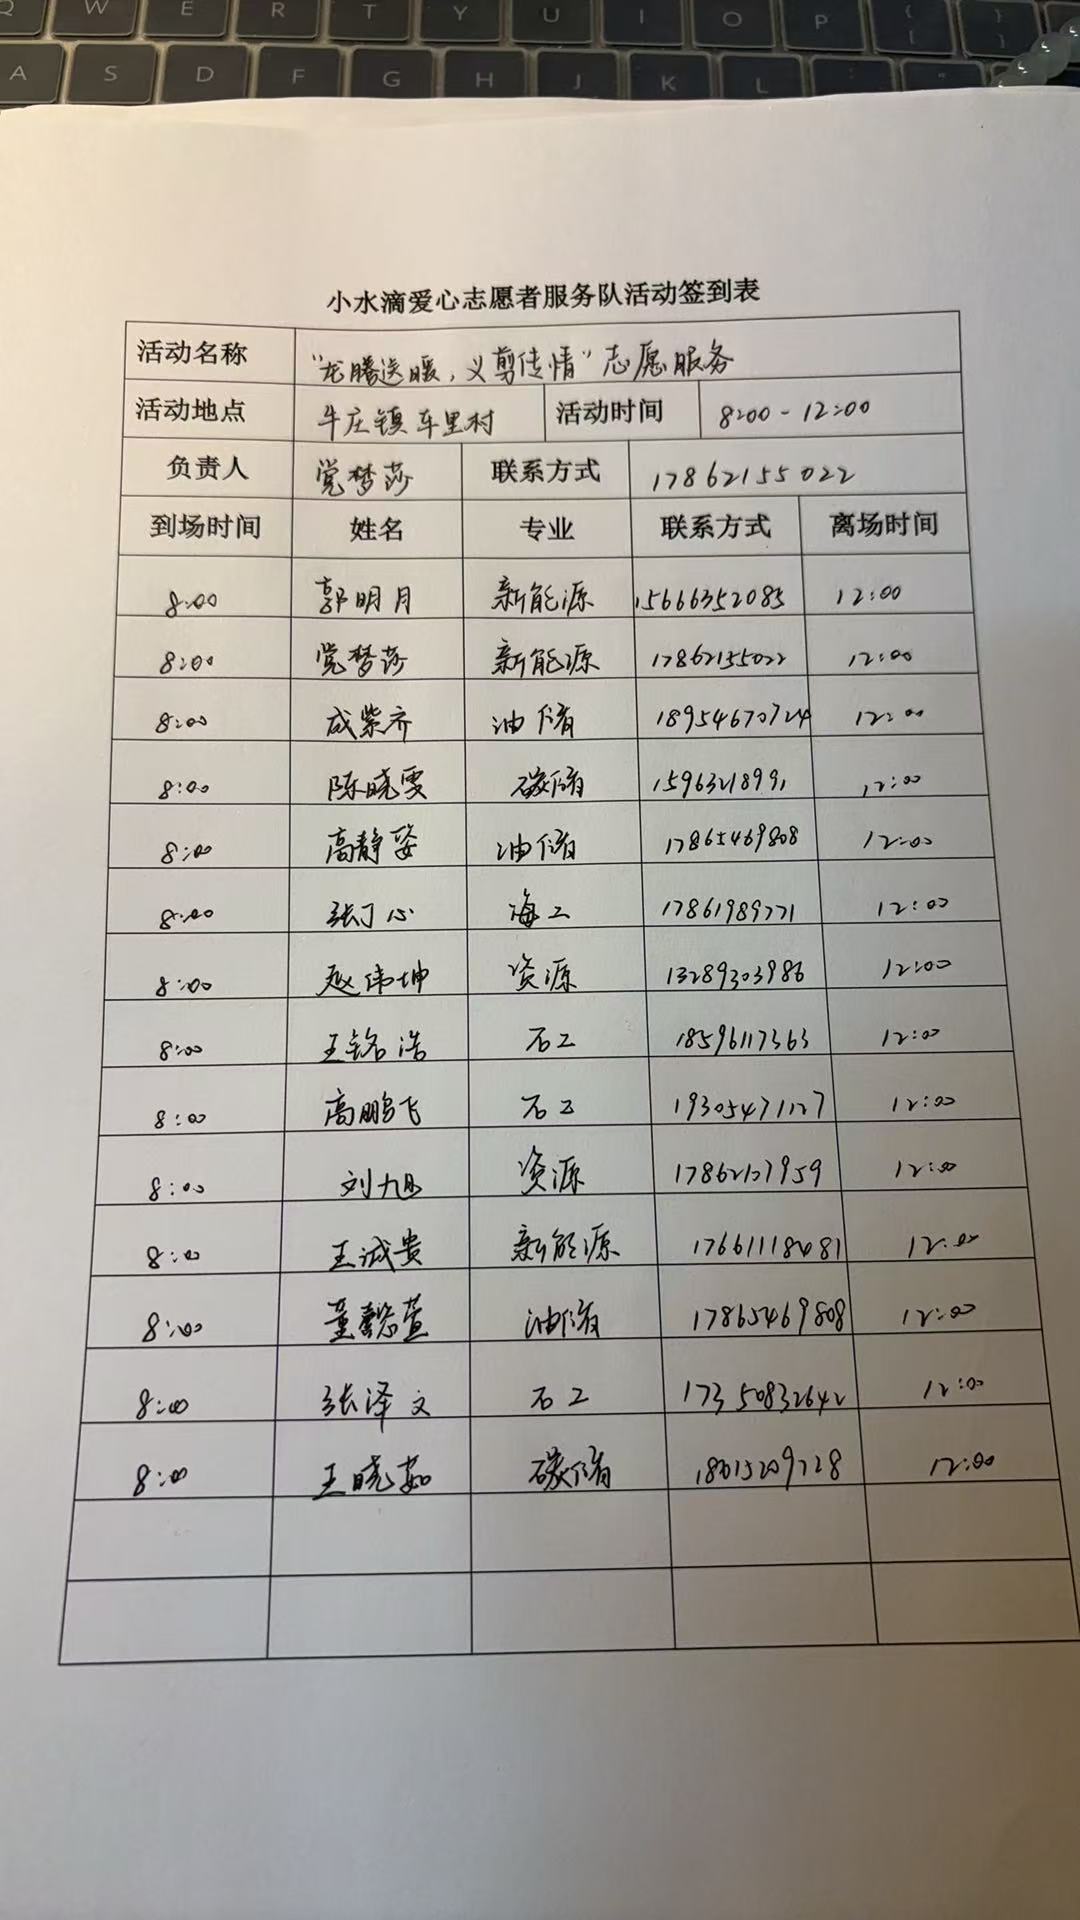 Q W E R T Y U I O P { [ } ]
A S D F G H J K L : ; "
小水滴爱心志愿者服务队活动签到表
活动名称 "龙腾送暖,义剪传情"志愿服务
活动地点 牛庄镇车里村 活动时间 8:00-12:00
负责人 党梦莎 联系方式 17862155022
到场时间 姓名 专业 联系方式 离场时间
8:00 郭明月 新能源 15666352085 12:00
8:00 党梦莎 新能源 17862155022 12:00
8:00 成紫齐 油储 18954670724 12:00
8:00 陈晓雯 碳储 1596321899 12:00
8:00 高静姿 油储 17865469808 12:00
8:00 张丁心 海工 17861989771 12:00
8:00 赵伟坤 资源 13289303986 12:00
8:00 王铭浩 石工 18596117363 12:00
8:00 高鹏飞 石工 19305471127 12:00
8:00 刘旭 资源 17862137959 12:00
8:00 王诚贵 新能源 17661118481 12:00
8:00 董懿萱 油储 17865469808 12:00
8:00 张泽文 石工 17350832642 12:00
8:00 王晓茹 碳储 18615209728 12:00